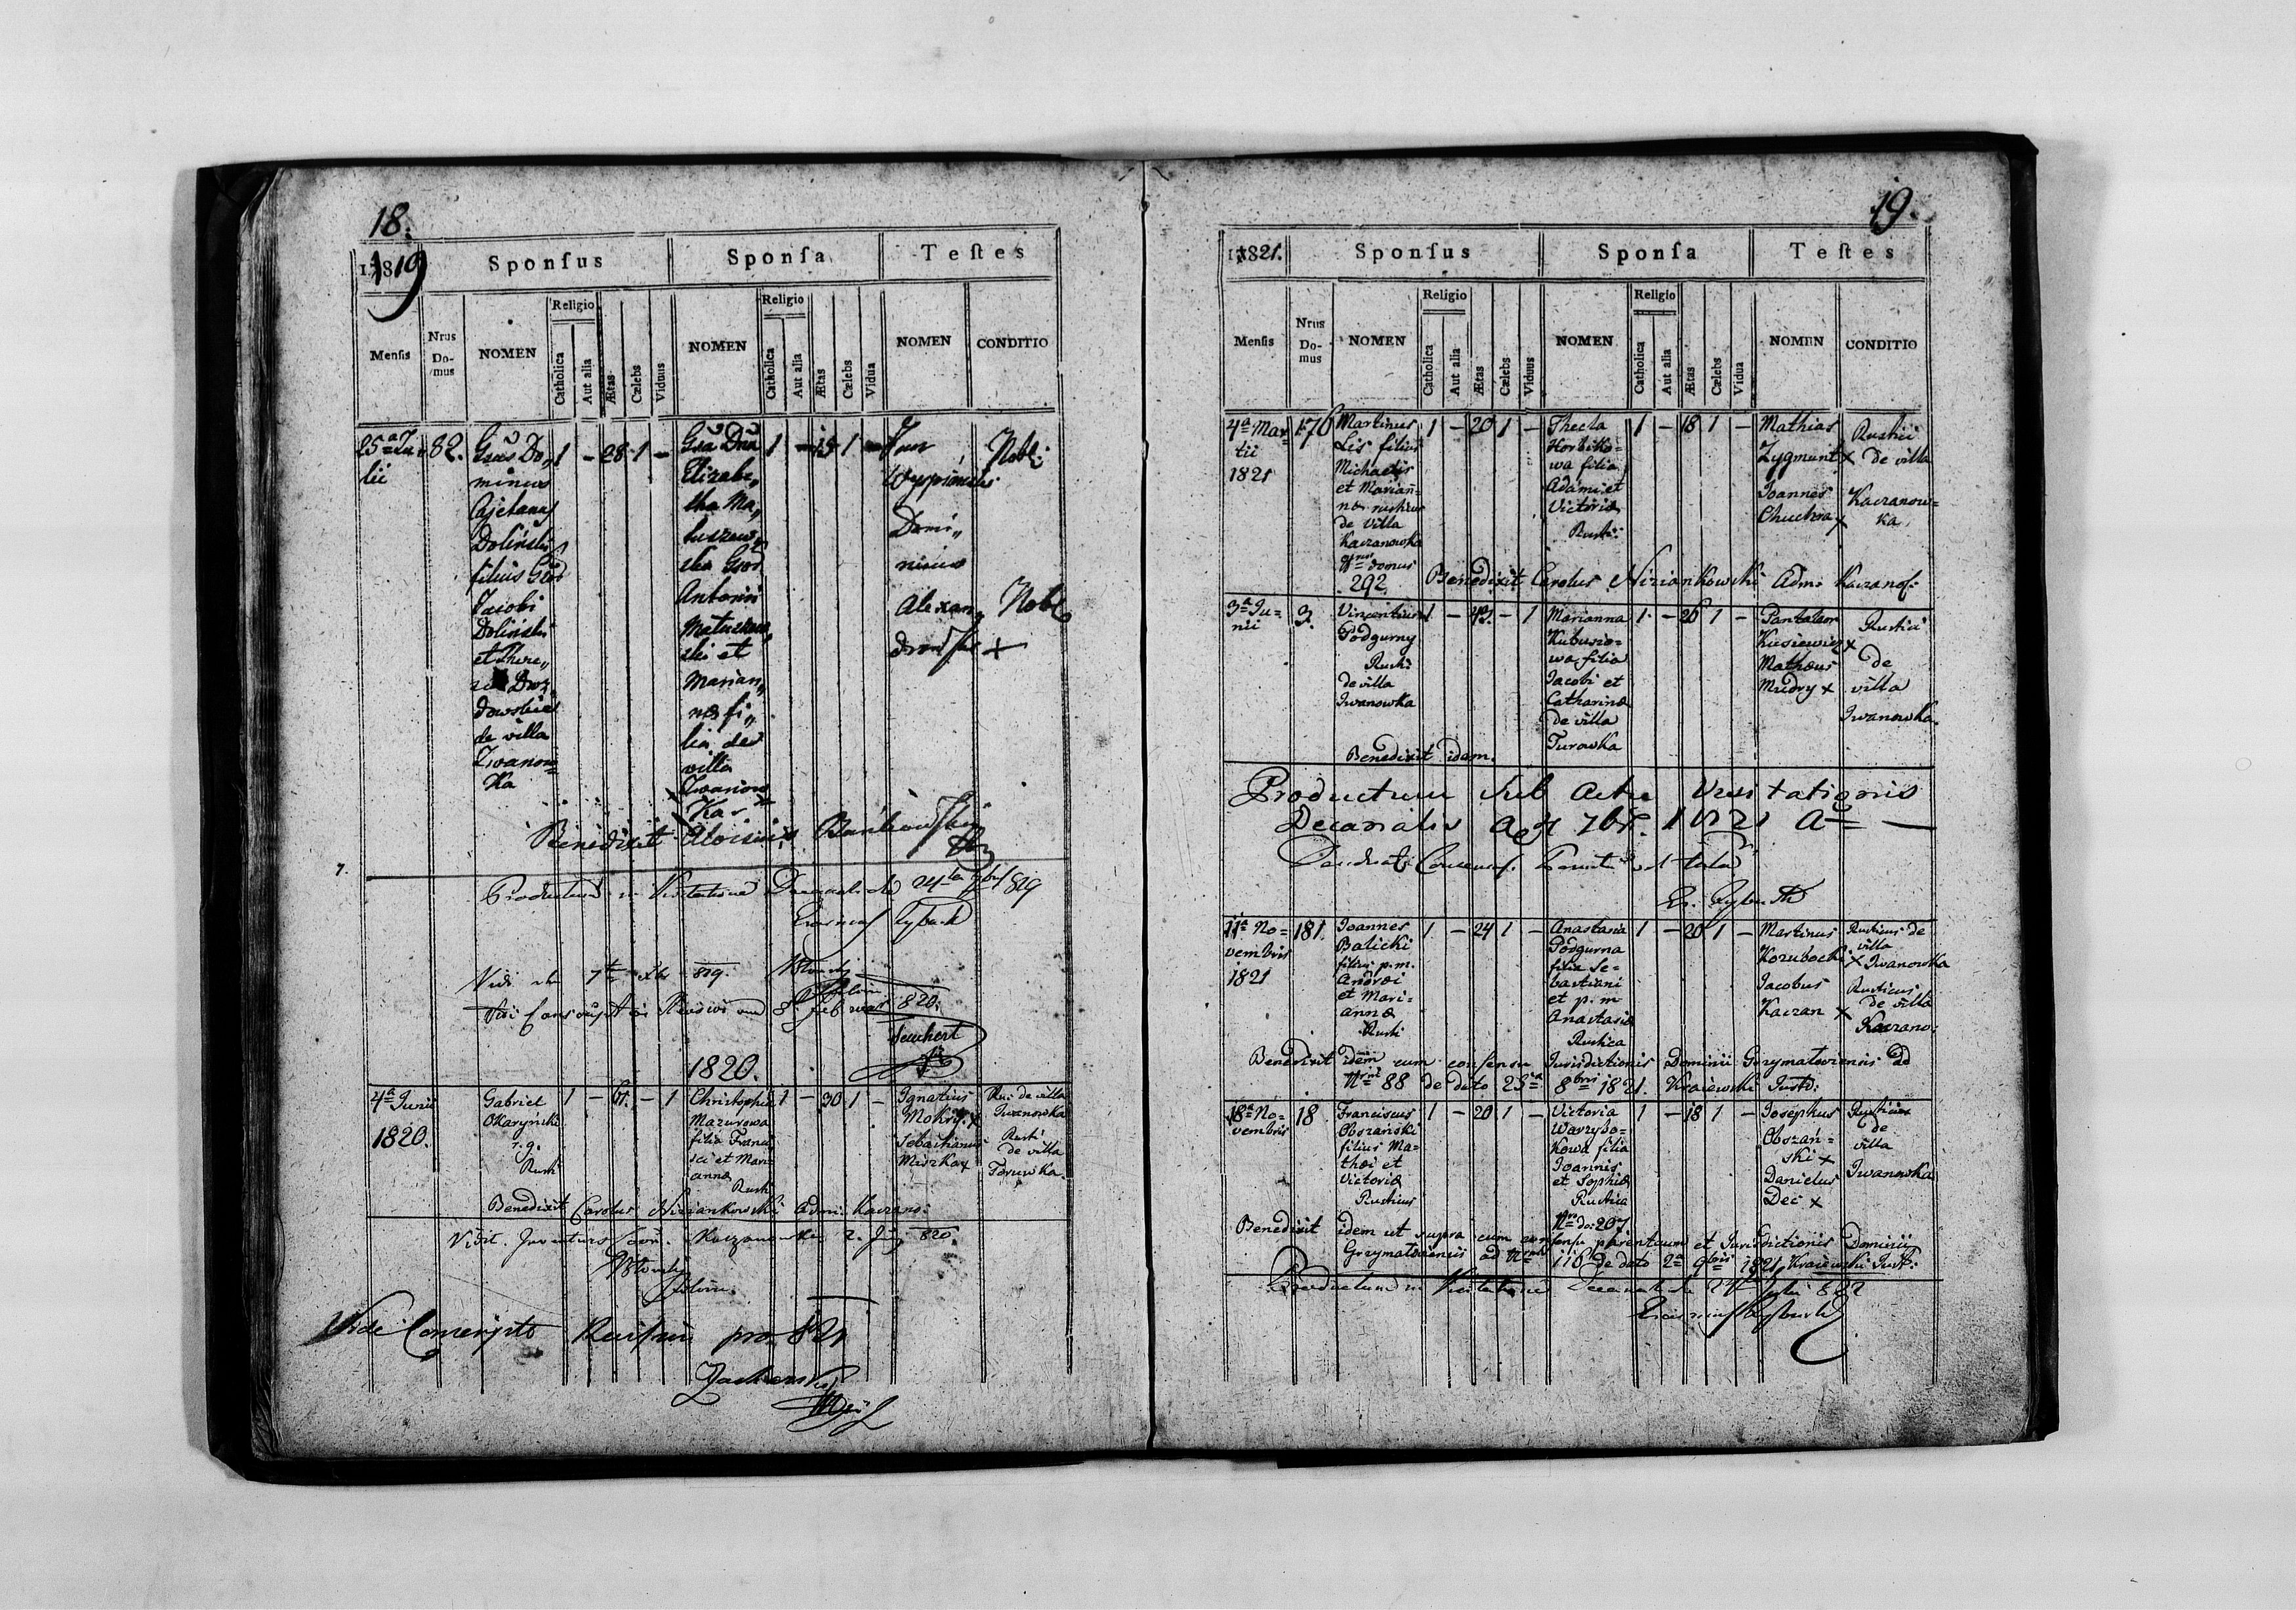 18.
1819
Sponsus
Sponsa
Testes
Mensis
Nrus Domus
NOMEN
Religio
Catholica
Aut alia
Ætas
Cælebs
Viduus
NOMEN
Religio
Catholica
Aut alia
Ætas
Cælebs
Vidua
NOMEN
CONDITIO
25a Ju
lii
82.
Gsus Do„
minus
Cajetanus
Doliński
filius Gsor
Jacobi
Doliński
et There„
Dowskie
de villa
Iwanow=
Ka
1 – 28 1 –
Gsa Dna
Elizabe„
tha Ma„
tuszew„
ska Gsor
Antonii
Matuszew„
ski et
Marian„
næ fi„
lia de
villa
Iwanow
Ka
1 – 1 –
Jan
Nobl:
Domi„
nicus
Alexan„
drowski +
Nobl
Benedixit Aloisius
7.
Productum in Visitatione Decanali die 24ta 7bris 819
Erasmus Rybacki
Vidi die 7t xbr 819.
Vidi Conscript in Revisione 8 Februar 820.
1820.
4a Junii
1820.
Gabriel
Okaryński
r. g.
Rusti
1 – 61. – 1
Christophia
Mazurowa
filia Franci
sci et Mari
annæ
Rusti
1 – 30 1 –
Ignatius
Mokry. x
Sebastianus
Miszka x
Rus: de villa
Iwanowka
Rusti
de villa
Toruwka.
Benedixit Carolus Niziankowski Adm: Kaczano:
Vidit. 2. Junij 820.
Vidi Conscripto Revisium pro 821
19.
1821.
Sponsus
Sponsa
Testes
Mensis
Nrus Domus
NOMEN
Religio
Catholica
Aut alia
Ætas
Cælebs
Viduus
NOMEN
Religio
Catholica
Aut alia
Ætas
Cælebs
Vidua
NOMEN
CONDITIO
4a Mar=
tii
1821
176
Martinus
Lis filius
Michaelis
et Marian=
næ rusticus
de villa
Kaczanowka
Nrus domus
292
1 – 20 1 –
Thecla
Horbiko=
wa filia
Adami et
Victoriæ
Rusti:
1 – 18 1 –
Mathias
Zygmunt x
Joannes
Chuchra x
Rustici
de villa
Kaczanow=
ka
Benedixit Carolus Niziankowski Adm: Kaczanof:
3a Ju=
nii
3.
Vincentius
Podgurny
Rusti
de villa
Iwanowka
1 – 43. – 1
Marianna
Kubusio=
wa filia
Jacobi et
Catharinæ
de villa
Turowka
1. – 26 1 –
Pantaleon
Kusiewicz x
Mathæus
Mudry x
Rustici
de
villa
Iwanowka.
Benedixit idem.
Productum sub Actu Visitationis
Decanalis 7br. 1821
11a No=
vembris
1821
181.
Joannes
Balicki
filius p.m.
Andræi
et Mari=
annæ
Rusti
1 – 24 1 –
Anastasia
Podgurna
filia Se=
bastiani
et p. m
Anastasiæ
Rustica
1 – 20 1 –
Martinus
Kozubocki x
Jacobus
Kaczan x
Rusticus de
villa
Iwanowka
Rusticus
de villa
Kaczano:
Benedixit idem cum consensu Jurisdictionis Dominii Grzymatoviensis de
Nro 88 de dato 25a 8bris 1821. Kraiewski Justi:
18a No=
vembris
18
Franciscus
Obszański
filius Ma=
thæi et
Victoriæ
Rusticus
1 – 20 1 –
Victoria
Warzybo=
Kowa filia
Joannis
et Sophiæ
Rustica
Nro do: 207
1 – 18 1 –
Josephus
Obszań=
ski x
Danielus
Dec x
Rusticus
de
villa
Iwanowka
Benedixit idem ut supra cum consensu parentum et Jurisdictionis Dominii
Grzymatoviensis ad Nrum 116 de dato 2a 9bris 1821 Kraiewski Just:
Productum in Visitatione Decanali die Julii 822